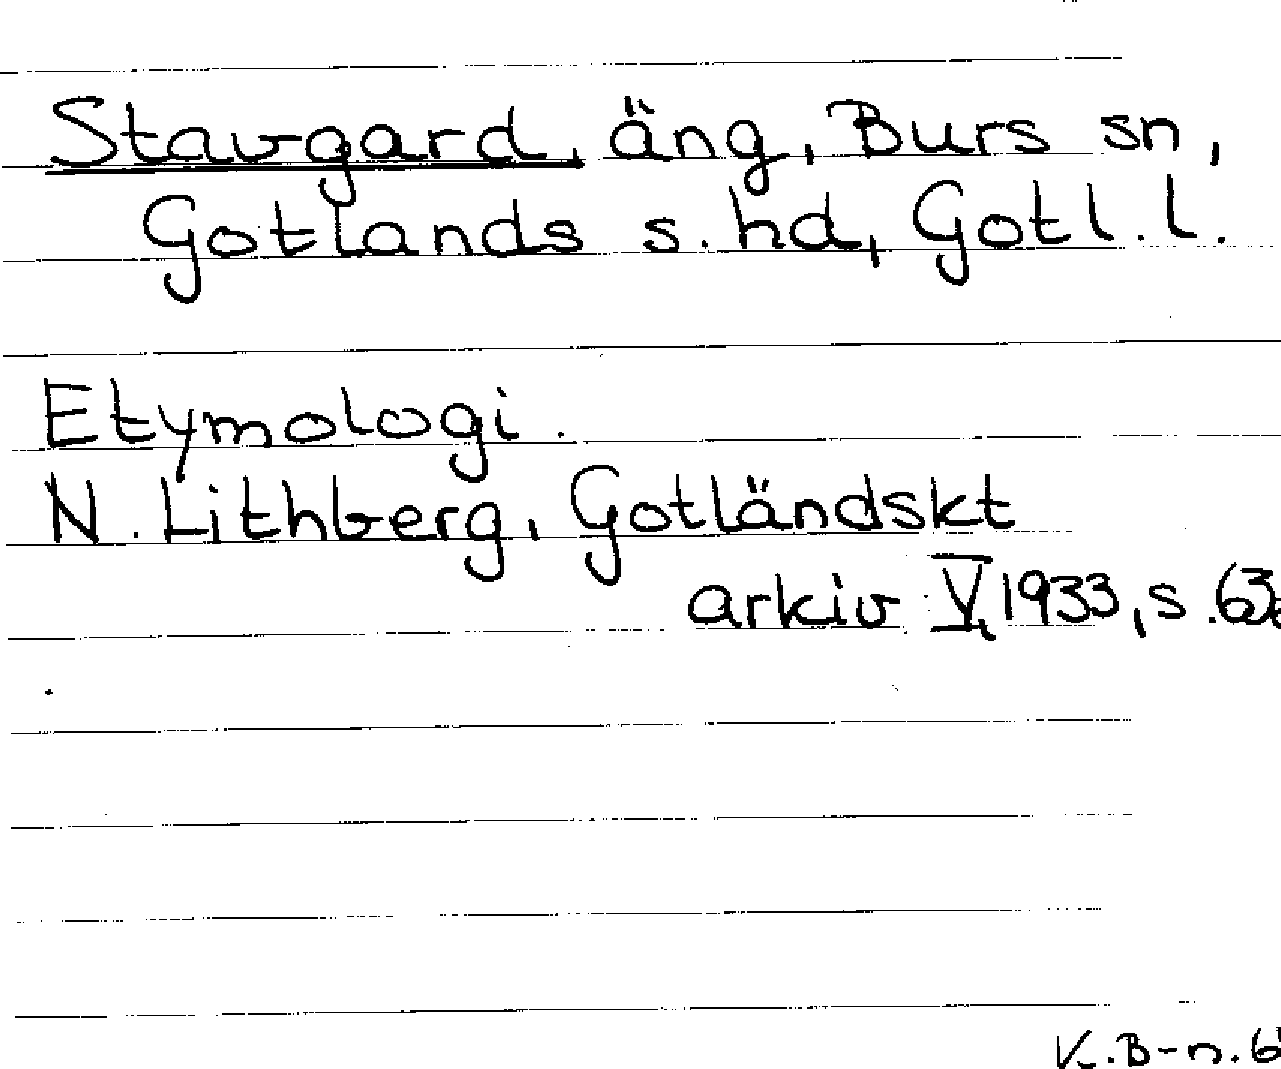 Stavgard, äng, Burs sn,
Gotlands s. hd, Gotl. l.
Etymologi.
N. Lithberg, Gotländskt
arkiv V, 1933, s. 63
K. B-n. 6